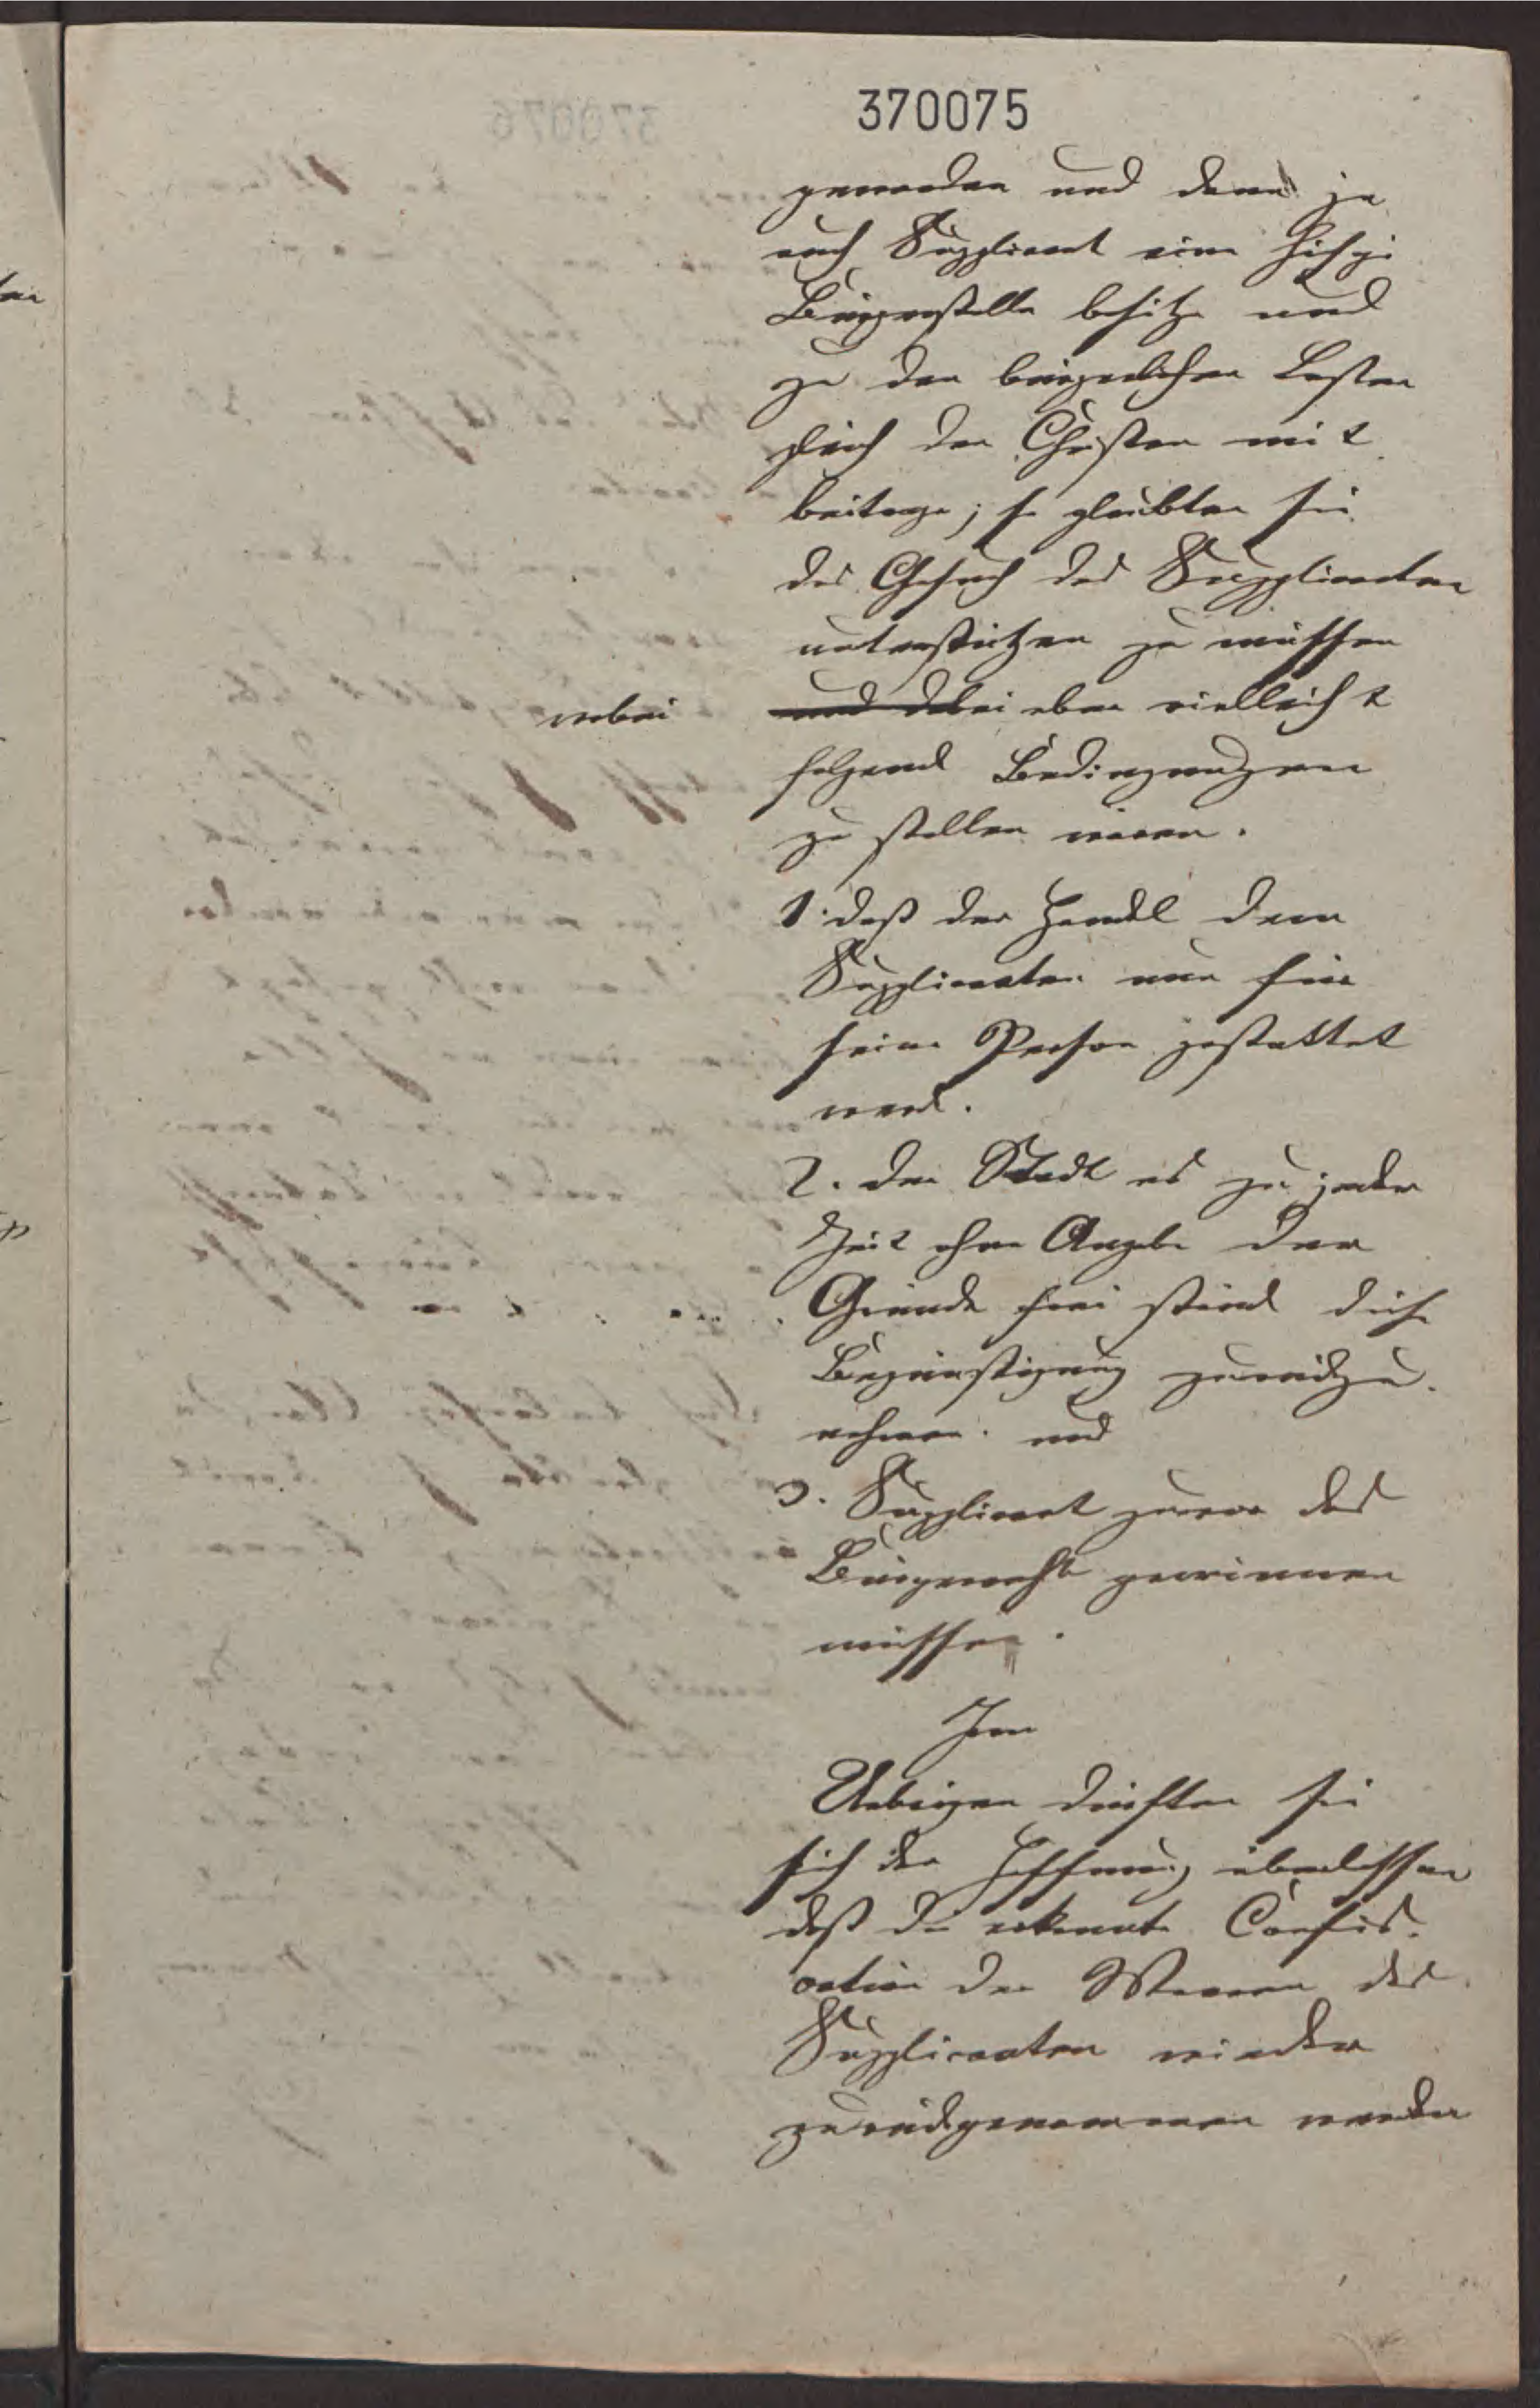 370075
geworden und denn ja
auch Supplicant eine hiesige
Bürgerstelle besitze und
zu den bürgerlichen Lasten
gleich den Christen mit
beitrage; so glaubten sie
das Gesuch des Supplicanten
unterstützen zu müssen
wobei
und dabei aber vielleicht
folgende Bedingungen
zu stellen wären.
1. daß der Handel dem
Supplicanten nur für
seine Person gestattet
werde.
2. der Stadt es zu jeder
Zeit ohne Angabe der
Gründe frei stünde diese
Begünstigung zurückzu
nehmen. und
3. Supplicant zuvor das
Bürgerrecht gewinnen
müsse.
Im
Uebrigen dürften sie
sich der Hoffnung überlassen
daß die erkannte Confis
cation der Waaren des
Supplicanten wieder
zurückgenommen werden